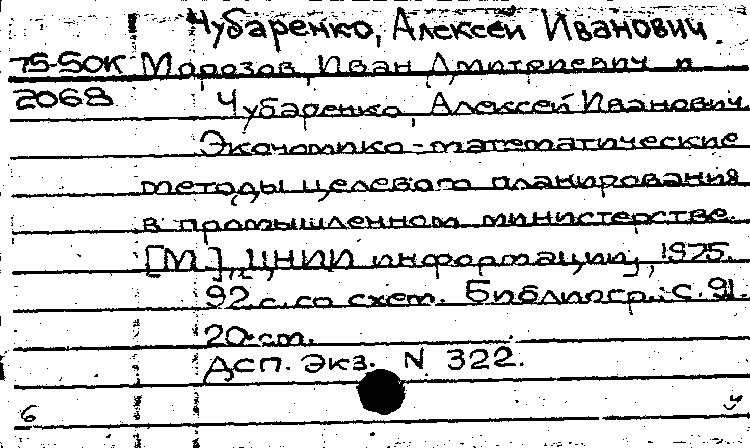 Чубаренко, Алексей Иванович.
75-50К Морозов, Иван Дмитриевич и
2068 Чубаренко, Алексей Иванович
Экономико-математические
методы целевого планирования
в промышленном министерстве.
[М], "ЦНИИ информации", 1975.
92 с. со схем. Библиогр.: с. 91.
20 см.
ДСП. Экз. N 322.
6 у